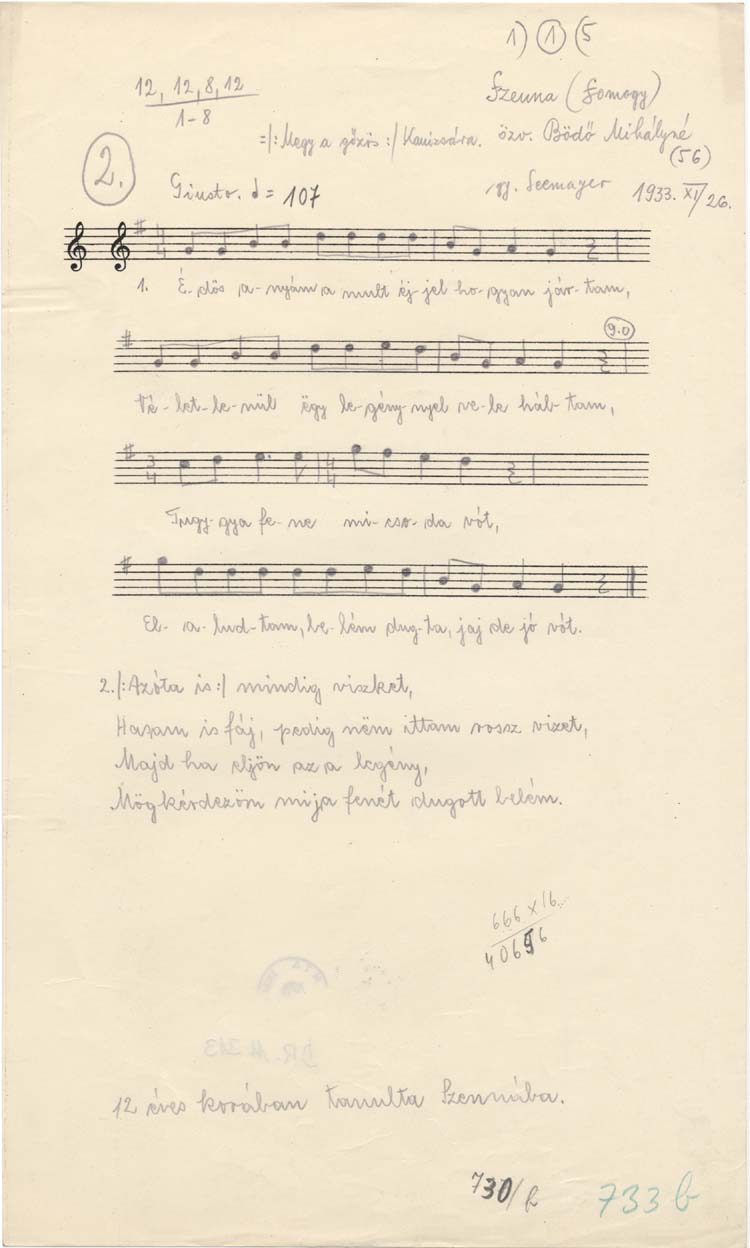 1) 1 (5
12, 12, 8, 12
1-8
Szenna (Somogy)
=/: Megy a gőzös :/ Kanizsára. özv. Bödő Mihályné
(56)
2.
Giusto. d = 107
gy. Seemayer 1933. XI/26.
4/4
1. É-dös a-nyám a mult éj-jel ho-gyan jár-tam,
9.0
Vé-let-le-nül ëgy le-gény-nyel ve-le hál-tam,
3/4 4/4
Tugy-gya fe-ne mi-cso-da vót,
El-a-lud-tam, be-lém dug-ta, jaj de jó vót.
2. /: Azóta is :/ mindig viszket,
Hasam is fáj, pedig nëm ittam rossz vizet,
Majd ha eljön az a legény,
Mögkérdezöm mija fenét dugott belém.
666 x 16
DR. M 313
12 éves korában tanulta Szennába.
730/b 733 b